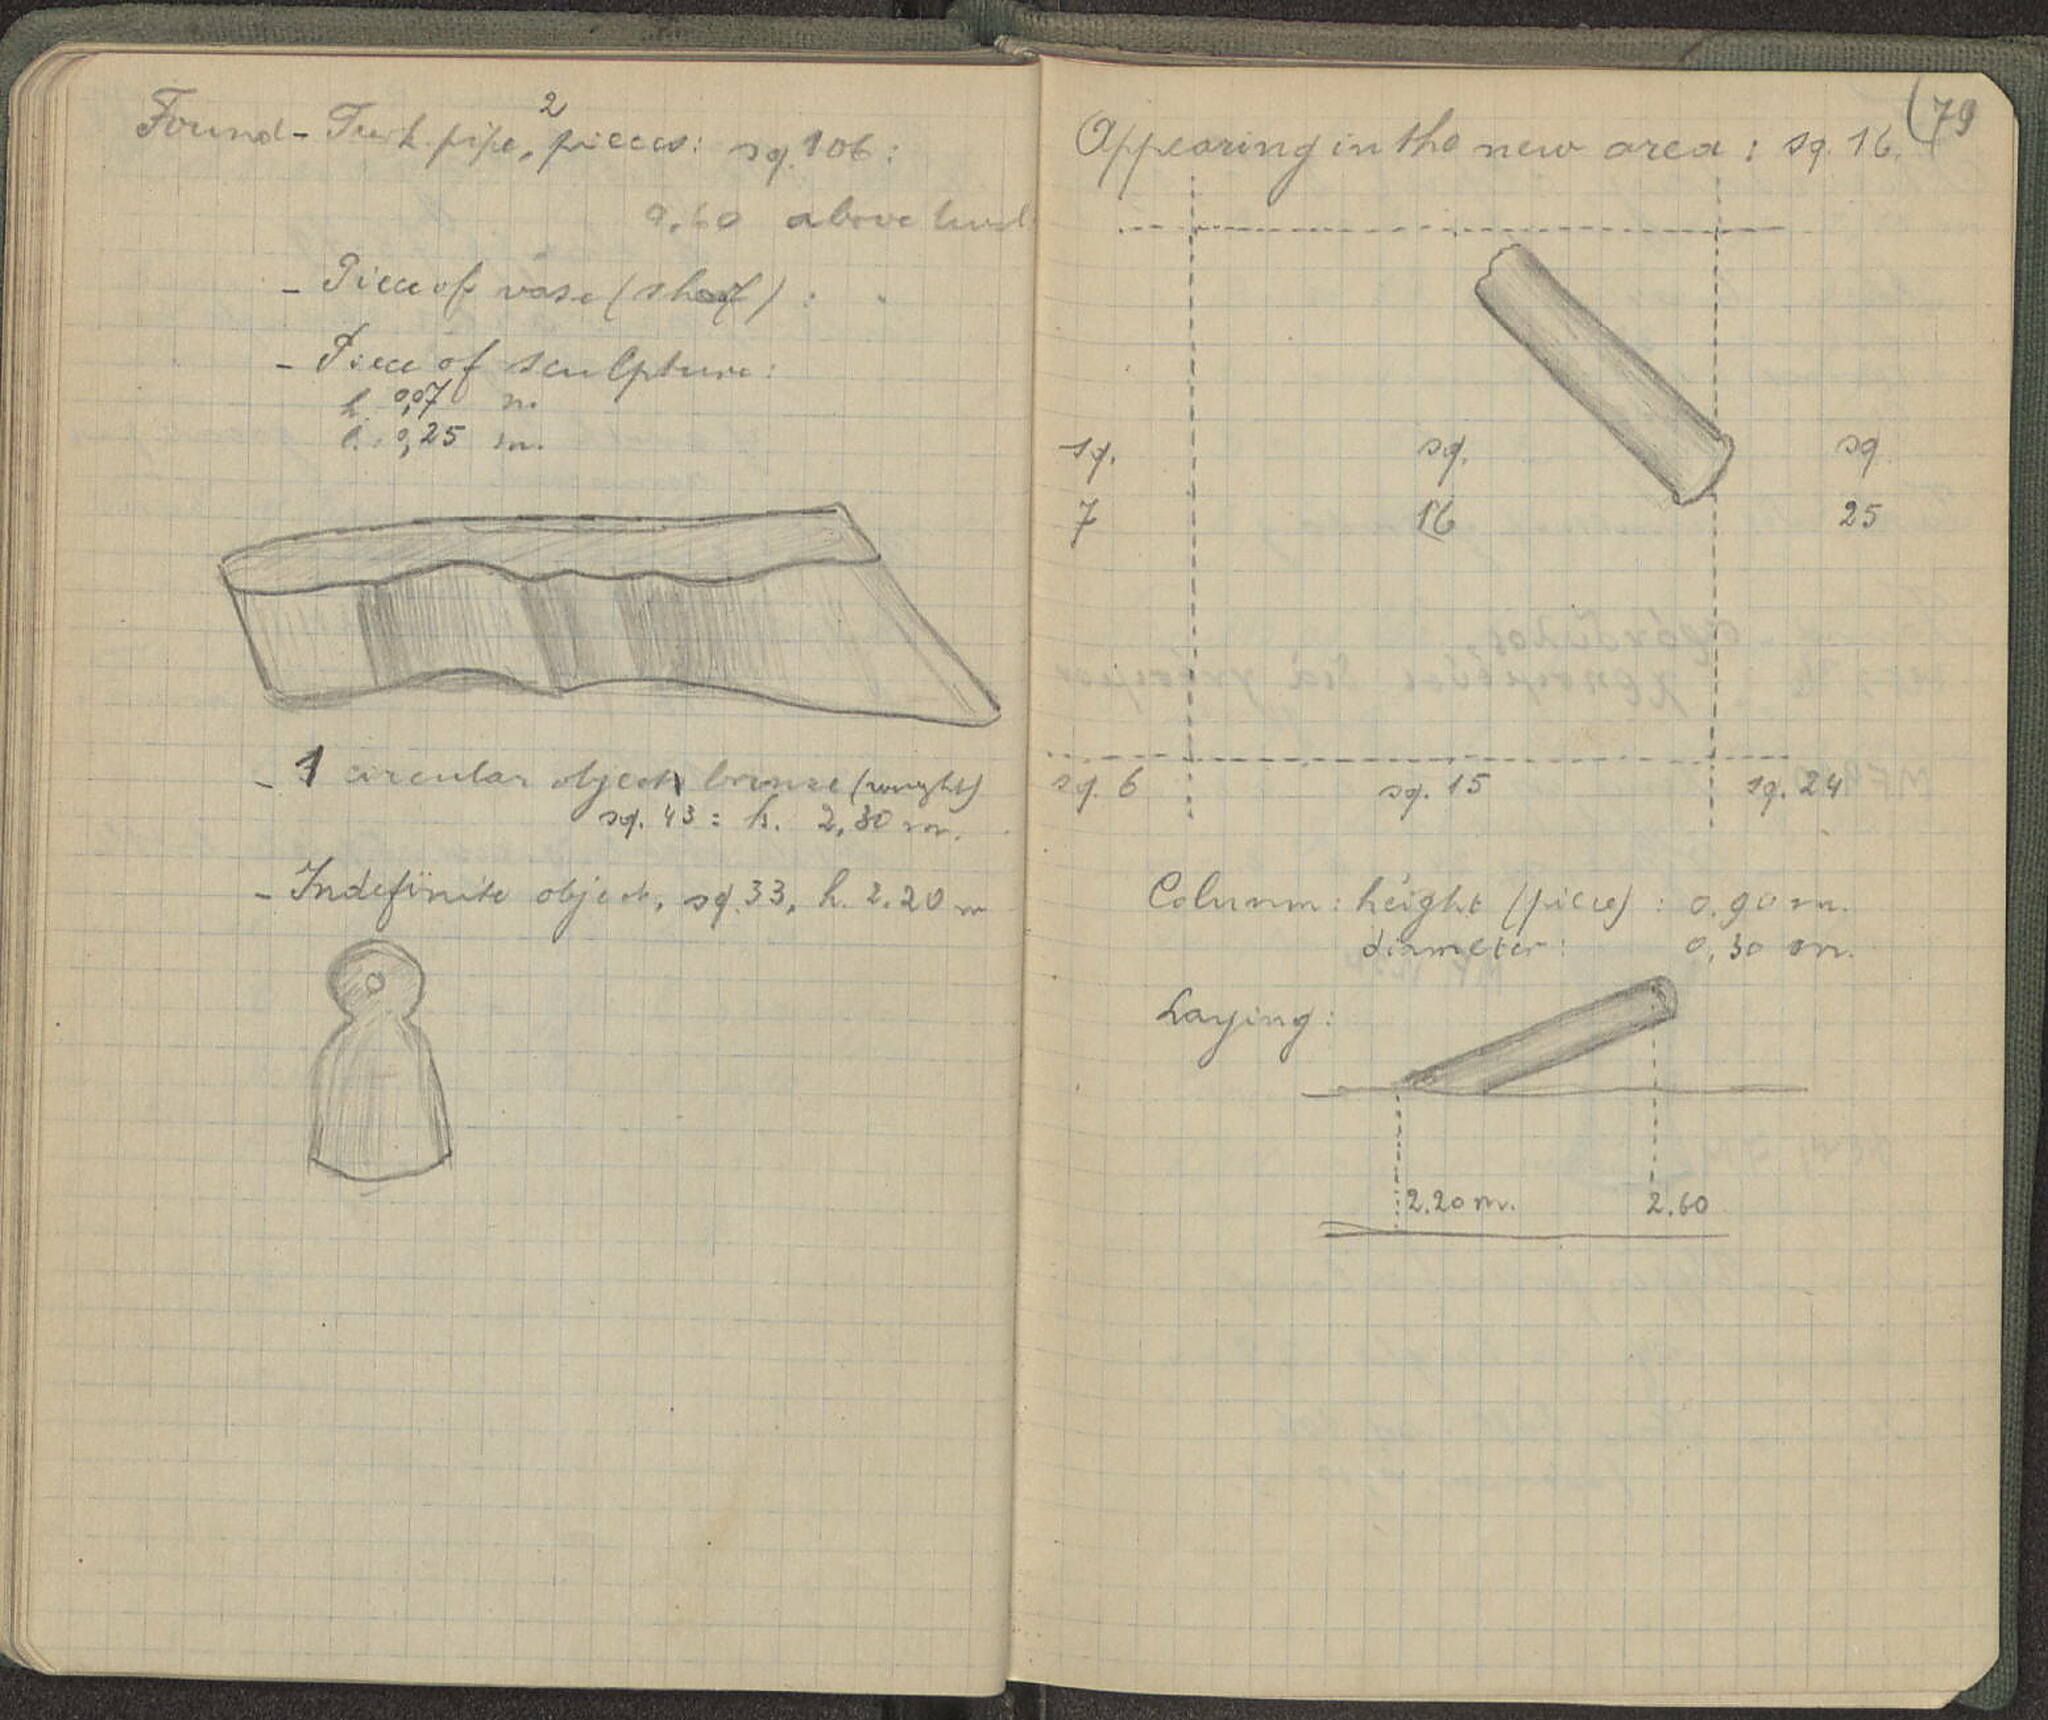 Found - Turk. pipe, 2 pieces: sq. 106:
0,60 above level
- Piece of vase ( ) :
- Piece of sculpture:
h. 0,07 m.
l. 0,25 m.
- 1 circular object bronze (weight)
sq. 43 = h. 2,30 m.
- Indefinite object, sq. 33, h. 2.20 m
79
Appearing in the new area : sq. 16.
sq. sq. sq
7 16 25
sq. 6 sq. 15 sq. 24
Column : height (piece) : 0.90 m.
diameter : 0,30 m.
Laying :
2.20 m. 2.60